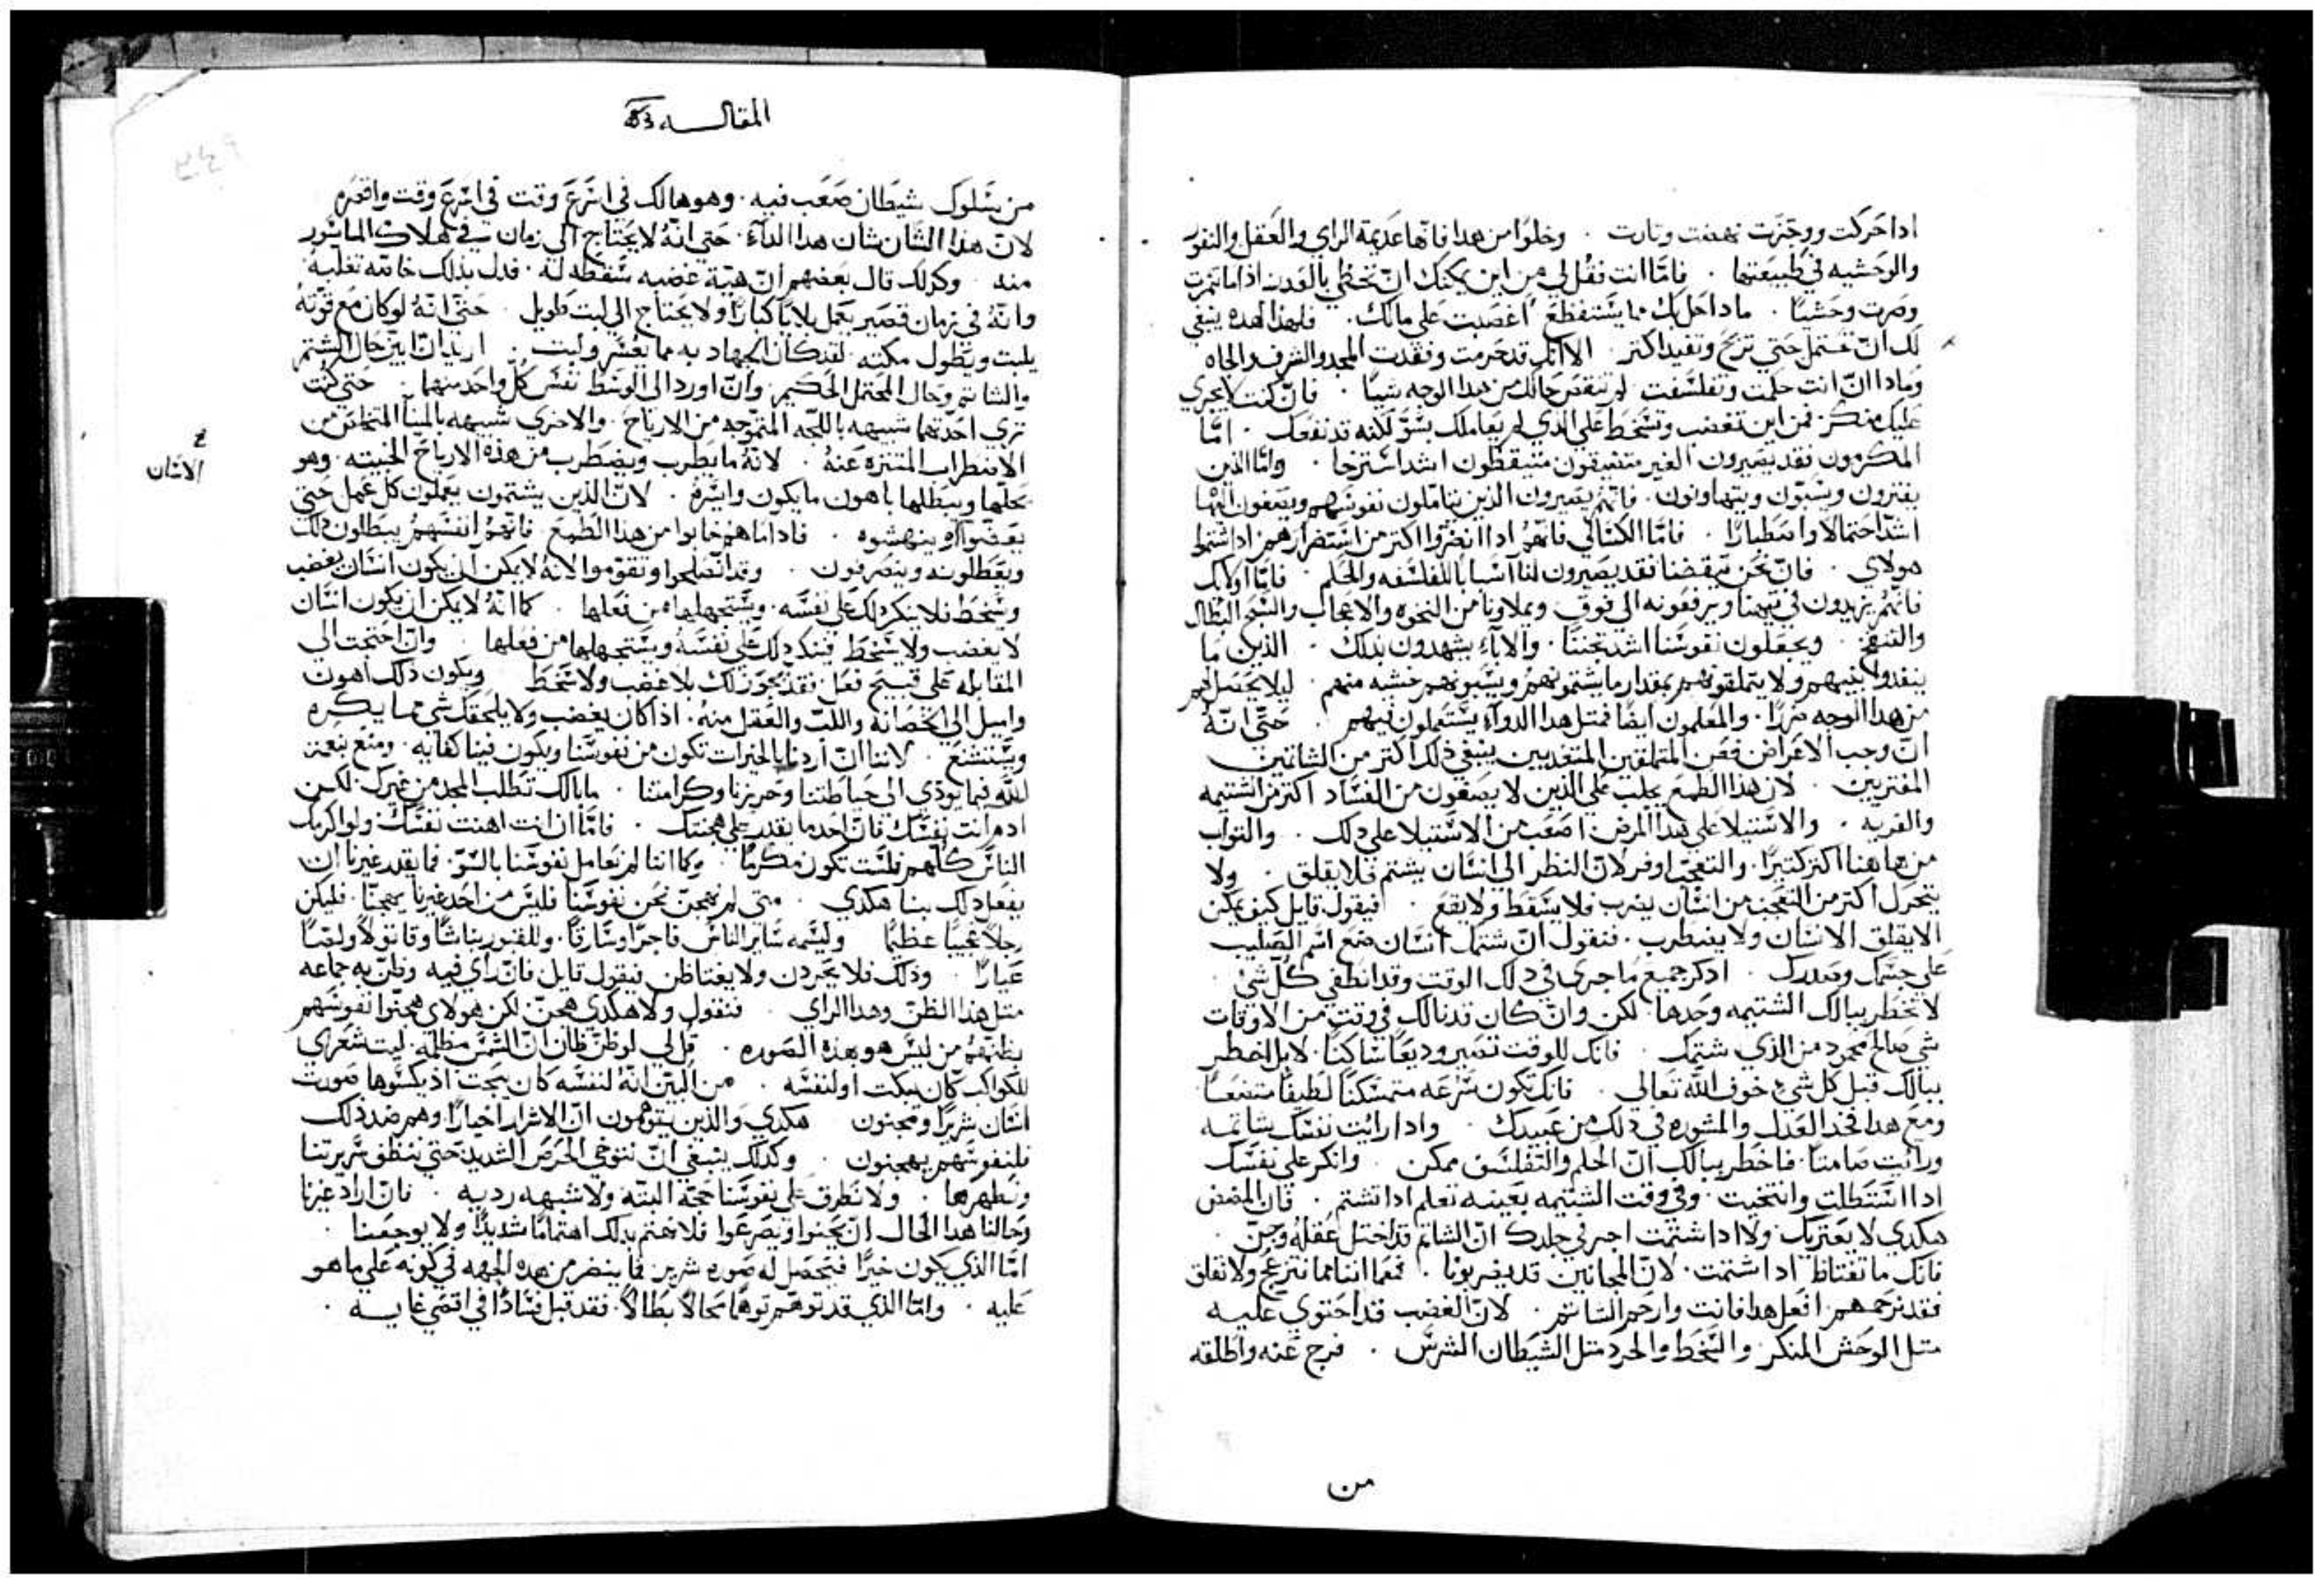 اذا حركت ووجزت نهضت وثارت . وخلوا من هدا فانها عديمة الراي والعقل والنفور
والوحشيه في طبيعتها . فامّا انت فقل لي من اين يمكنك انّ تحظي بالعدد اذا ما تنمرت
وصرت وحشيًا . ماذا حل بك مما يستفظع اغصبت على مالك . فلهذا الهده ينبغي
لك انّ تحتمل حتي تربح وتفيد اكتر . الا انك قد حرمت وفقدت المجد والشرف والجاه
وماذا انّ انت حلمت وتفلسفت لم تنقص حالك من هدا الوجه شيًا . فان كنت لا يجري
عليك منكر فمن اين تغضب وتسخط علي الدي لم يعاملك بسوّ لكنه قد نفعك . امّا
المكرمون فقد يصيرون الغير متيقظون اشد استرخا . وامّا الذين
يفترون ويسبّون ويتهاونون . فانهم يصيرون الذين يتاملون نفوسهم ويصغون اليها
اشد احتمالا واصطبارًا . فامّا الكسالي فانهم اذا انضروا اكتر من استضرارهم اذا شتموا
هولاي . فانّ نحن تيقضنا فقد يصيرون لنا اسبابا للفلسفه والحلم . فامّا اوليك
فانهم يزيدون في تيهنا ويرفعونه الي فوق ويملاونا من النخوه والاعجاب والسبح البطال
والتنفخ . ويجعلون نفوسنا اشد تخنثا . والاباء يشهدون بذلك . الذين ما
ينفدوا بنيهم ولا يتملقونهم بمقدار ما يشتمونهم ويسبونهم خشيه منهم . ليلا يحصل لهم
من هدا الوجه ضررًا . والمعلمون ايضًا فمتل هدا الدوآء يستعملون فيهم . حتي انّه
انّ وجب الاعراض فعن المتملقين ينبغي ذلك اكتر من الشاتمين
المفتريين . لان هذا الطمع يجلب علي الذين لا يصغون من الفساد اكتر من الشتيمه
والفريه . والاستيلا علي هدا المرض اصعب من الاستيلا علي ذلك . والتواب
من هاهنا اكتر كتيرًا . والتعجب اوفر لانّ النظر الي انسان يشتم فلا يقلق . ولا
يتحرك اكتر من التعجب من انسان يضرب فلا يسقط ولا يقع . افيقول قايل كيف يمكن
الا يقلق الانسان ولا يضطرب . فنقول انّ شتمك انسان ضع اسم الصليب
على جسمك وصدرك . ادكر جميع ما جري في ذلك الوقت وقد انطفي كل شي .
لا تخطر ببالك الشتيمه وحدها . لكن وانّ كان قد نالك في وقت من الاوقات
شي صالح محمود من الذي شتمك . فانك للوقت تصير وديعًا ساكنًا . لا بل اخطر
ببالك قبل كل شيء خوف الله تعالي . فانك تكون سرعه متمسكنًا لطيفًا متضعًا
ومع هدا فخد العدل والمشوره في ذلك من عبيدك . واذا رايت نفسك شاتمه
ورايت صامتًا . فاخطر ببالك انّ الحلم والتفلسف ممكن . وانكر علي نفسك
اذا استطلت وانتخيت . وفي وقت الشتيمه بعينه تعلم اذا تشتم . فان المضض
هكدي لا يعتريك ولا اذا شتمت اجري في خلدك انّ الشاتم قد اختل عقله وجنّ .
فانك ما تغتاظ اذا شتمت . لان المجانين قد يضربونا . فمع اننا ما ننزعج ولا نقلق
فقد نرحمهم . افعل هدا فانت وارحم الشاتم . لانّ الغضب قد احتوي عليه
متل الوحش المنكر والسخط والحرد متل الشيطان الشرس . فرج عنه واطلقه
من
المقاله
من سلوك شيطان صعب فيه . وهو هالك في اسرع وقت
لان هذا الشان شان هدا الدآء . حتي انّه لا يحتاج الي زمان في هلاك الماسور
منه . وكدلك قال بعضهم انّ هيّة غضبه سقطه له . فدل بذلك خاصّه تغلبه
وانّه في زمان قصير يعمل بلايا كبارًا ولا يحتاج الي لبت طويل . حتي انّه لو كان مع قوّته
يلبت ويطول مكته . لقد كان الجهاد به مما يعسر . اريد انّ ابيّن حال الشتم
والشاتم وحال المحتمل الحكيم وانّ اورد الي الوسط نفس كل واحد منهما . حتي كنت
تري احدتهما شبيهه باللجّه المتموّجه من الارياح . والاخري شبيهه بالمينآ المتخلص من
الاضطراب المتنزه عنه . لانّه ما يطرب ويضطرب من هذه الارياح الخبيته . وهو
الانسان
يحلّها ويبطلها باهون ما يكون وايسره . لانّ الذين يشتمون يعملون كل عمل حتي
ينهشوه . فاذا ما هم خابوا من هدا الطمع فانّهم انفسهم يبطلون ذلك
ويعطلونه وينصرفون . وقد انصلحوا وتقوّموا لانّه لا يمكن ان يكون انسان يغضب
ويسخط فلا ينكر ذلك علي نفسه . ويستجهلها من فعلها . كما انّه لا يمكن ان يكون انسان
لا يغضب ولا يسخط فينكر ذلك علي نفسه ويستجهلها من فعلها . وان احتجت الي
المقابله علي قبيح فعل . فقد يجوز لك بلا غضب ولا سخط ويكون ذلك اهون
واميل الي الحصانه واللبّ والعقل منه . اذا كان بغضب ولا يلحقك شي مما يكره
ويستشنع . لاننا انّ اردنا بالخيرات تكون من نفوسنا ويكون فينا كفايه . ومنع بنعمة
الله فيما يوذي الي حياطتنا وحريزنا وكرامتنا . ما بالك تطلب المجد من غيرك لكن
اكرم انت نفسك فانّ احد ما يقدر علي هجنتك . فامّا ان انت اهنت نفسك ولو اكرمك
الناس كلّهم فلست تكون مكرمًا . وكما اننا لم نعامل نفوسنا بالسوّ . فما يقدر غيرنا ان
يفعل ذلك بنا هكدي . متي لم نهجن نحن نفوسنا فليس من احد غيرنا يهجنّا . فليكن
رجلا عجيبًا عظيمًا وليسمه ساير الناس فاجرًا وسارقًا . وللقبور نباشًا وقاتولا ولصّا
عيارًا . وذلك فلا يحردن ولا يغتاظن فيقول قايل فانّ راي فيه وظنّ به جماعه
متل هذا الظنّ وهدا الراي . فنقول ولا هكدي هجن لكن هولاي هجّنوا نفوسهم
بظنّهم من ليس هو بهذه الصوره . قل لي لو ظنّ ظان انّ الشمس مظلمه . ليت شعري
للكواكب كان يبكت او لنفسه . من البيّن انّه لنفسه كان يبحت اذ يكسوها صورة
انسان شريرًا ومجنون هكدي والذين يتوهّمون انّ الاشرار اخيارًا وهم ضد ذلك
فلنفوسهم يهجنون . وكذلك ينبغي انّ نتوخي الحرص الشديد حتي ننظف سريرتنا
ونطهرها . ولا نطرق علي نفوسنا حجّه البتّه ولا شبهه رديه . فان اراد غيرنا
وحالنا هدا الحال ان يجنوا ويصرعوا فلا نهتم بدلك اهتمامًا شديدًا ولا يوجعنا .
امّا الذي يكون خيرًا فتحصل له صوره شرير فما ينضر من هده الجهه في كونه علي ما هو
عليه . وامّا الذي قد توهم توهّمًا محالًا بطالًا . فقد قبل فسادًا في اقصي غايه .